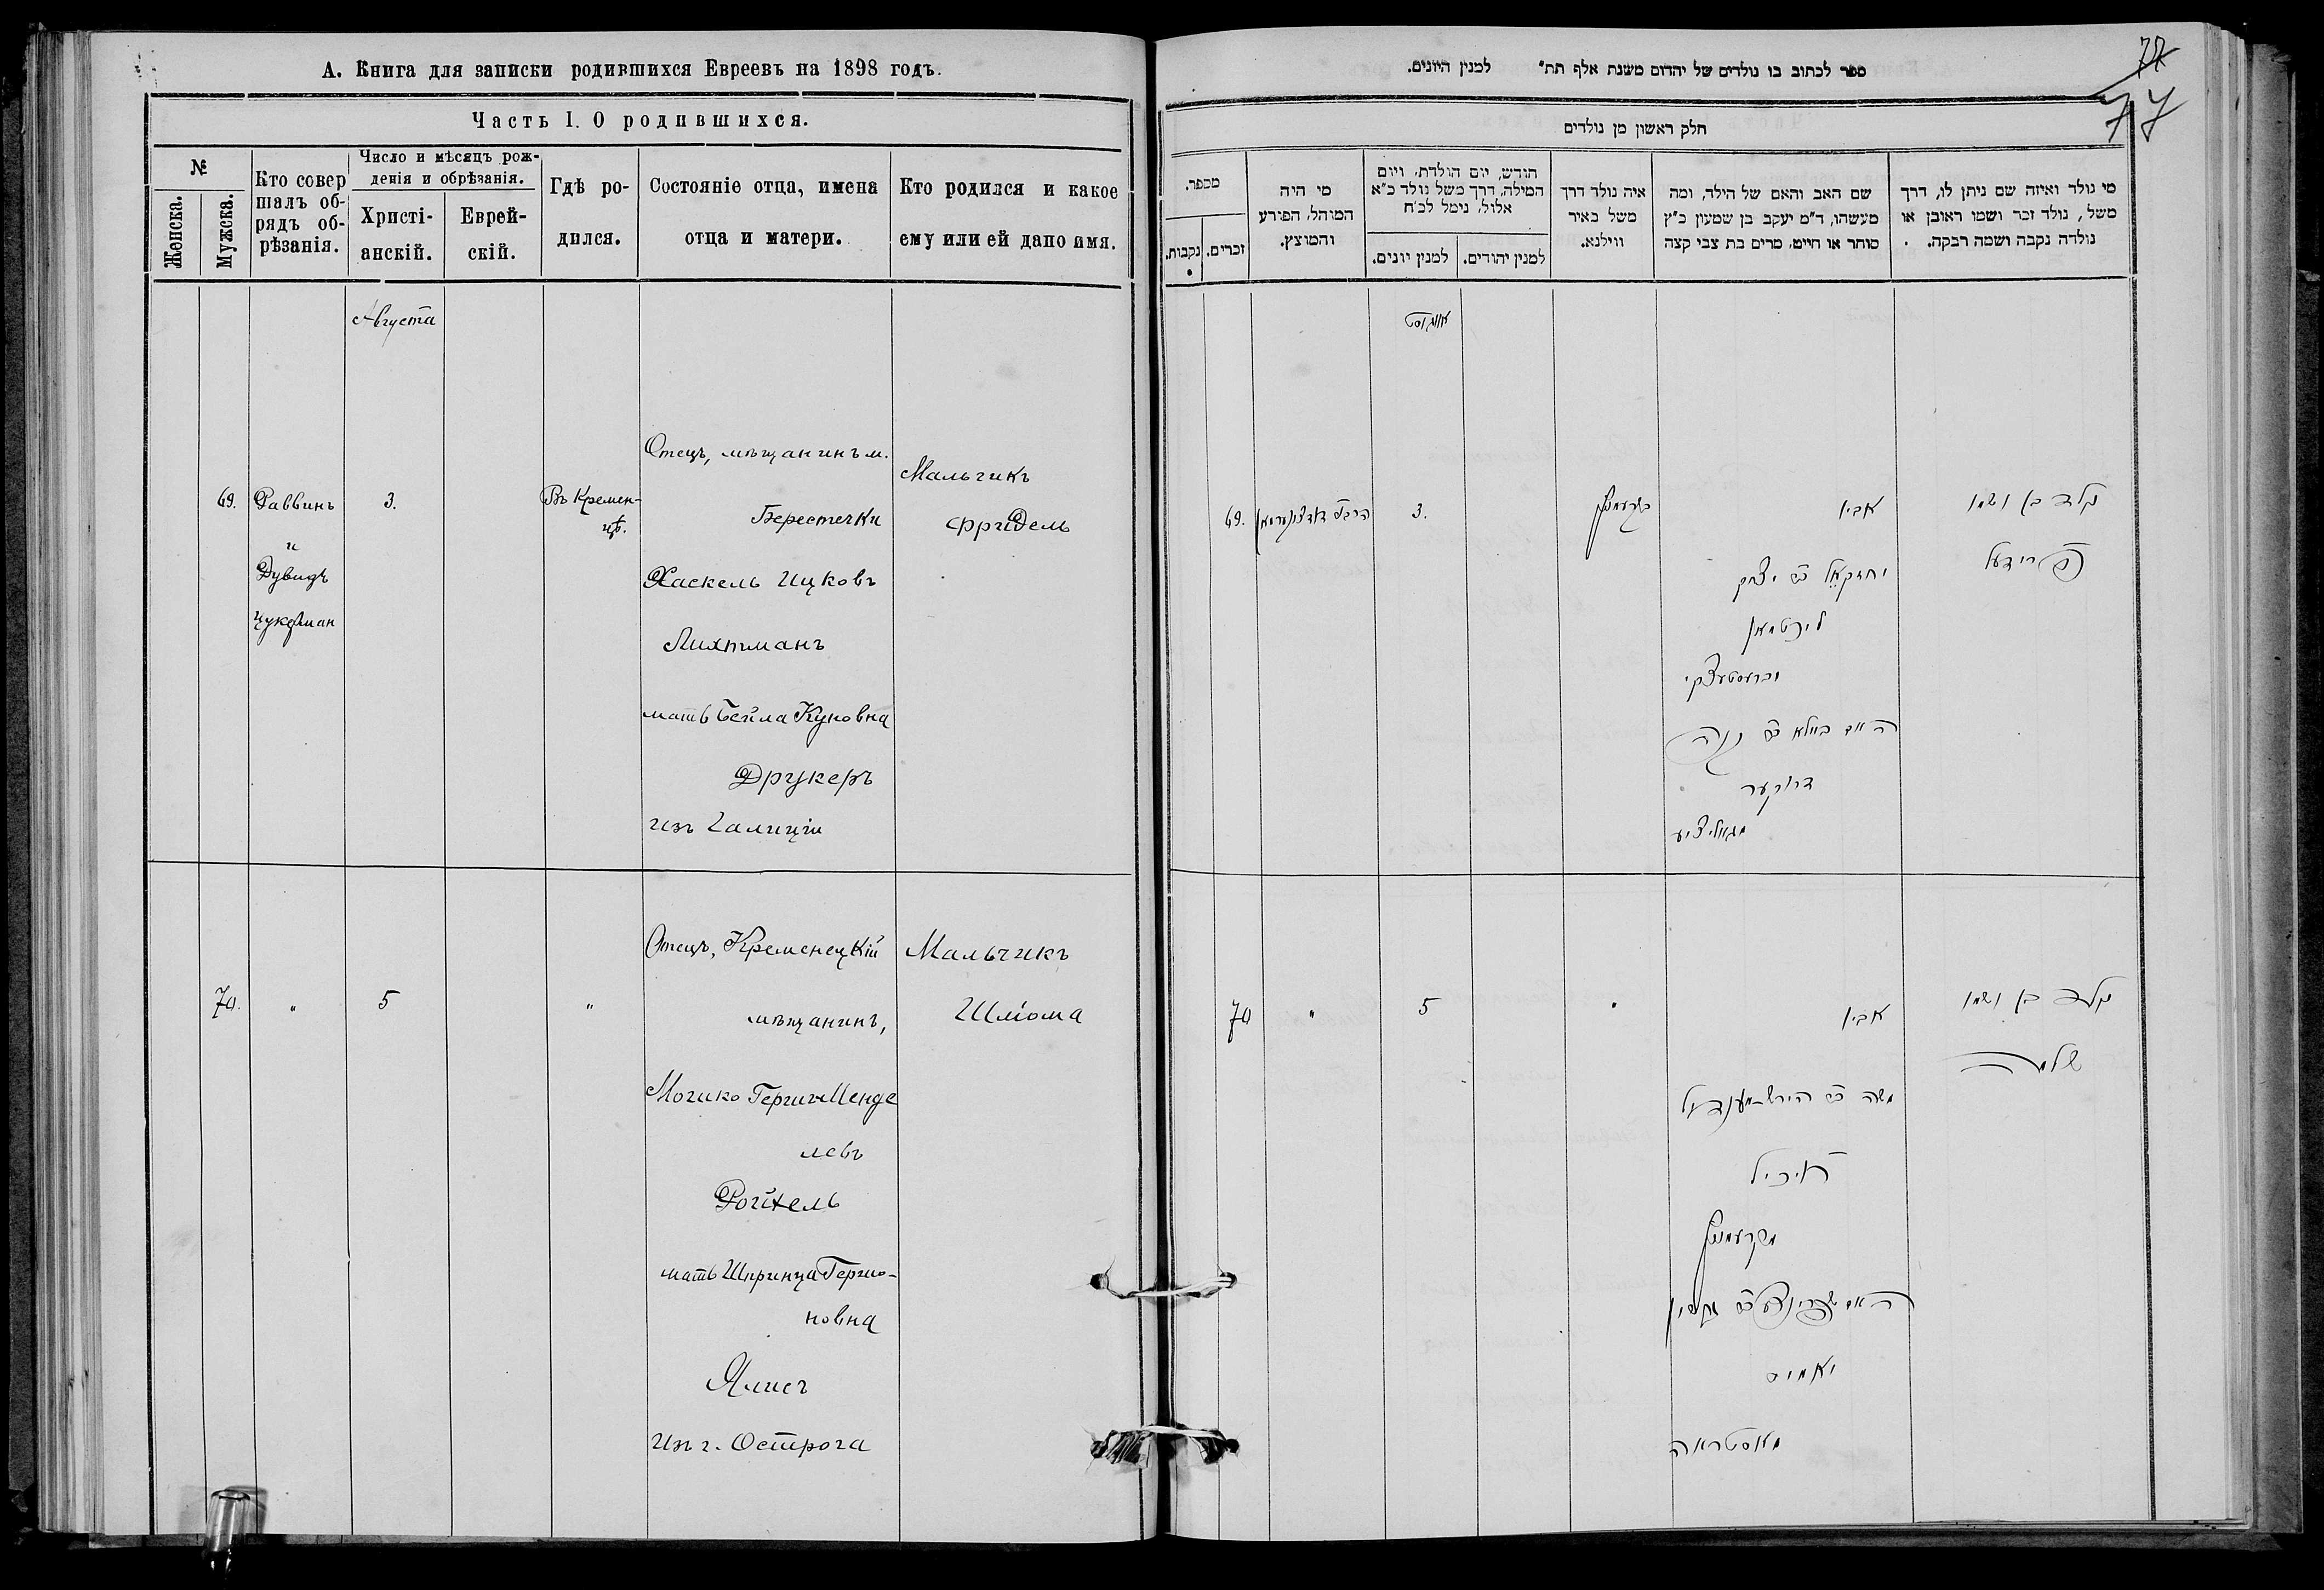 А. Книга для записки родившихся Евреевъ на 1898 годъ.
Часть I. О родившихся.
№
Женска.
Мужска.
Кто совер
шалъ об-
рядъ об-
рѣзанія.
Число и мѣсяцъ рож-
денія и обрѣзанія.
Христі-
анскій.
Еврей-
скій.
Гдѣ ро-
дился.
Состояніе отца, имена
отца и матери.
Кто родился и какое
ему или ей дано имя.
Августа
69.
Раввинъ
и
Дувидъ
Цукерман
3.
Въ Кремен-
цѣ.
Отецъ, мѣщанинъ м.
Берестечки
Хаскель Ицковъ
Лихтманъ
мать Бейла
Друкеръ
изъ Галиціи
Мальчикъ
Фридель
70.
"
5
"
Отецъ, Кременецкій
мѣщанинъ,
Менде
левъ
мать Шпринца
новна
из г. Острога
Мальчикъ
Шліома
77
77
ספר לכתוב בו נולדים של יהדום משנת אלף תת״ למנין היונים.
חלק ראשון מן נולדים
מספר.
נקבות.
זכרים.
מי היה
המוהל, הפורע
והמוצץ.
חודש, יום הולדת, ויום
המילה, דרך משל נולד כ״א
אלול, נימל לכ״ח
למנין יונים.
למנין יהודים.
איה נולד דרך
משל באיר
ווילנא.
שם האב והאם של הילד, ומה
מעשהו, ד״מ יעקב בן שמעון כ״ץ
סוחר או חייט, מרים בת צבי קצה
מי נולד ואיזה שם ניתן לו, דרך
משל, נולד זכר ושמו ראובן או
נולדה נקבה ושמה רבקה.
אווגוסט
69.
3.
אביו
יחזקאל ב״ר יצחק
ליכטמאן
האם ביילא
דרוקער
מגאליציע
נולד בן ושמו
פרידעל
70
"
5
"
אביו
משה ב״ר הירש-מענדיל
מקרעמניץ
האם שפרינצע
מאסטראה
נולד בן ושמו
שלמה